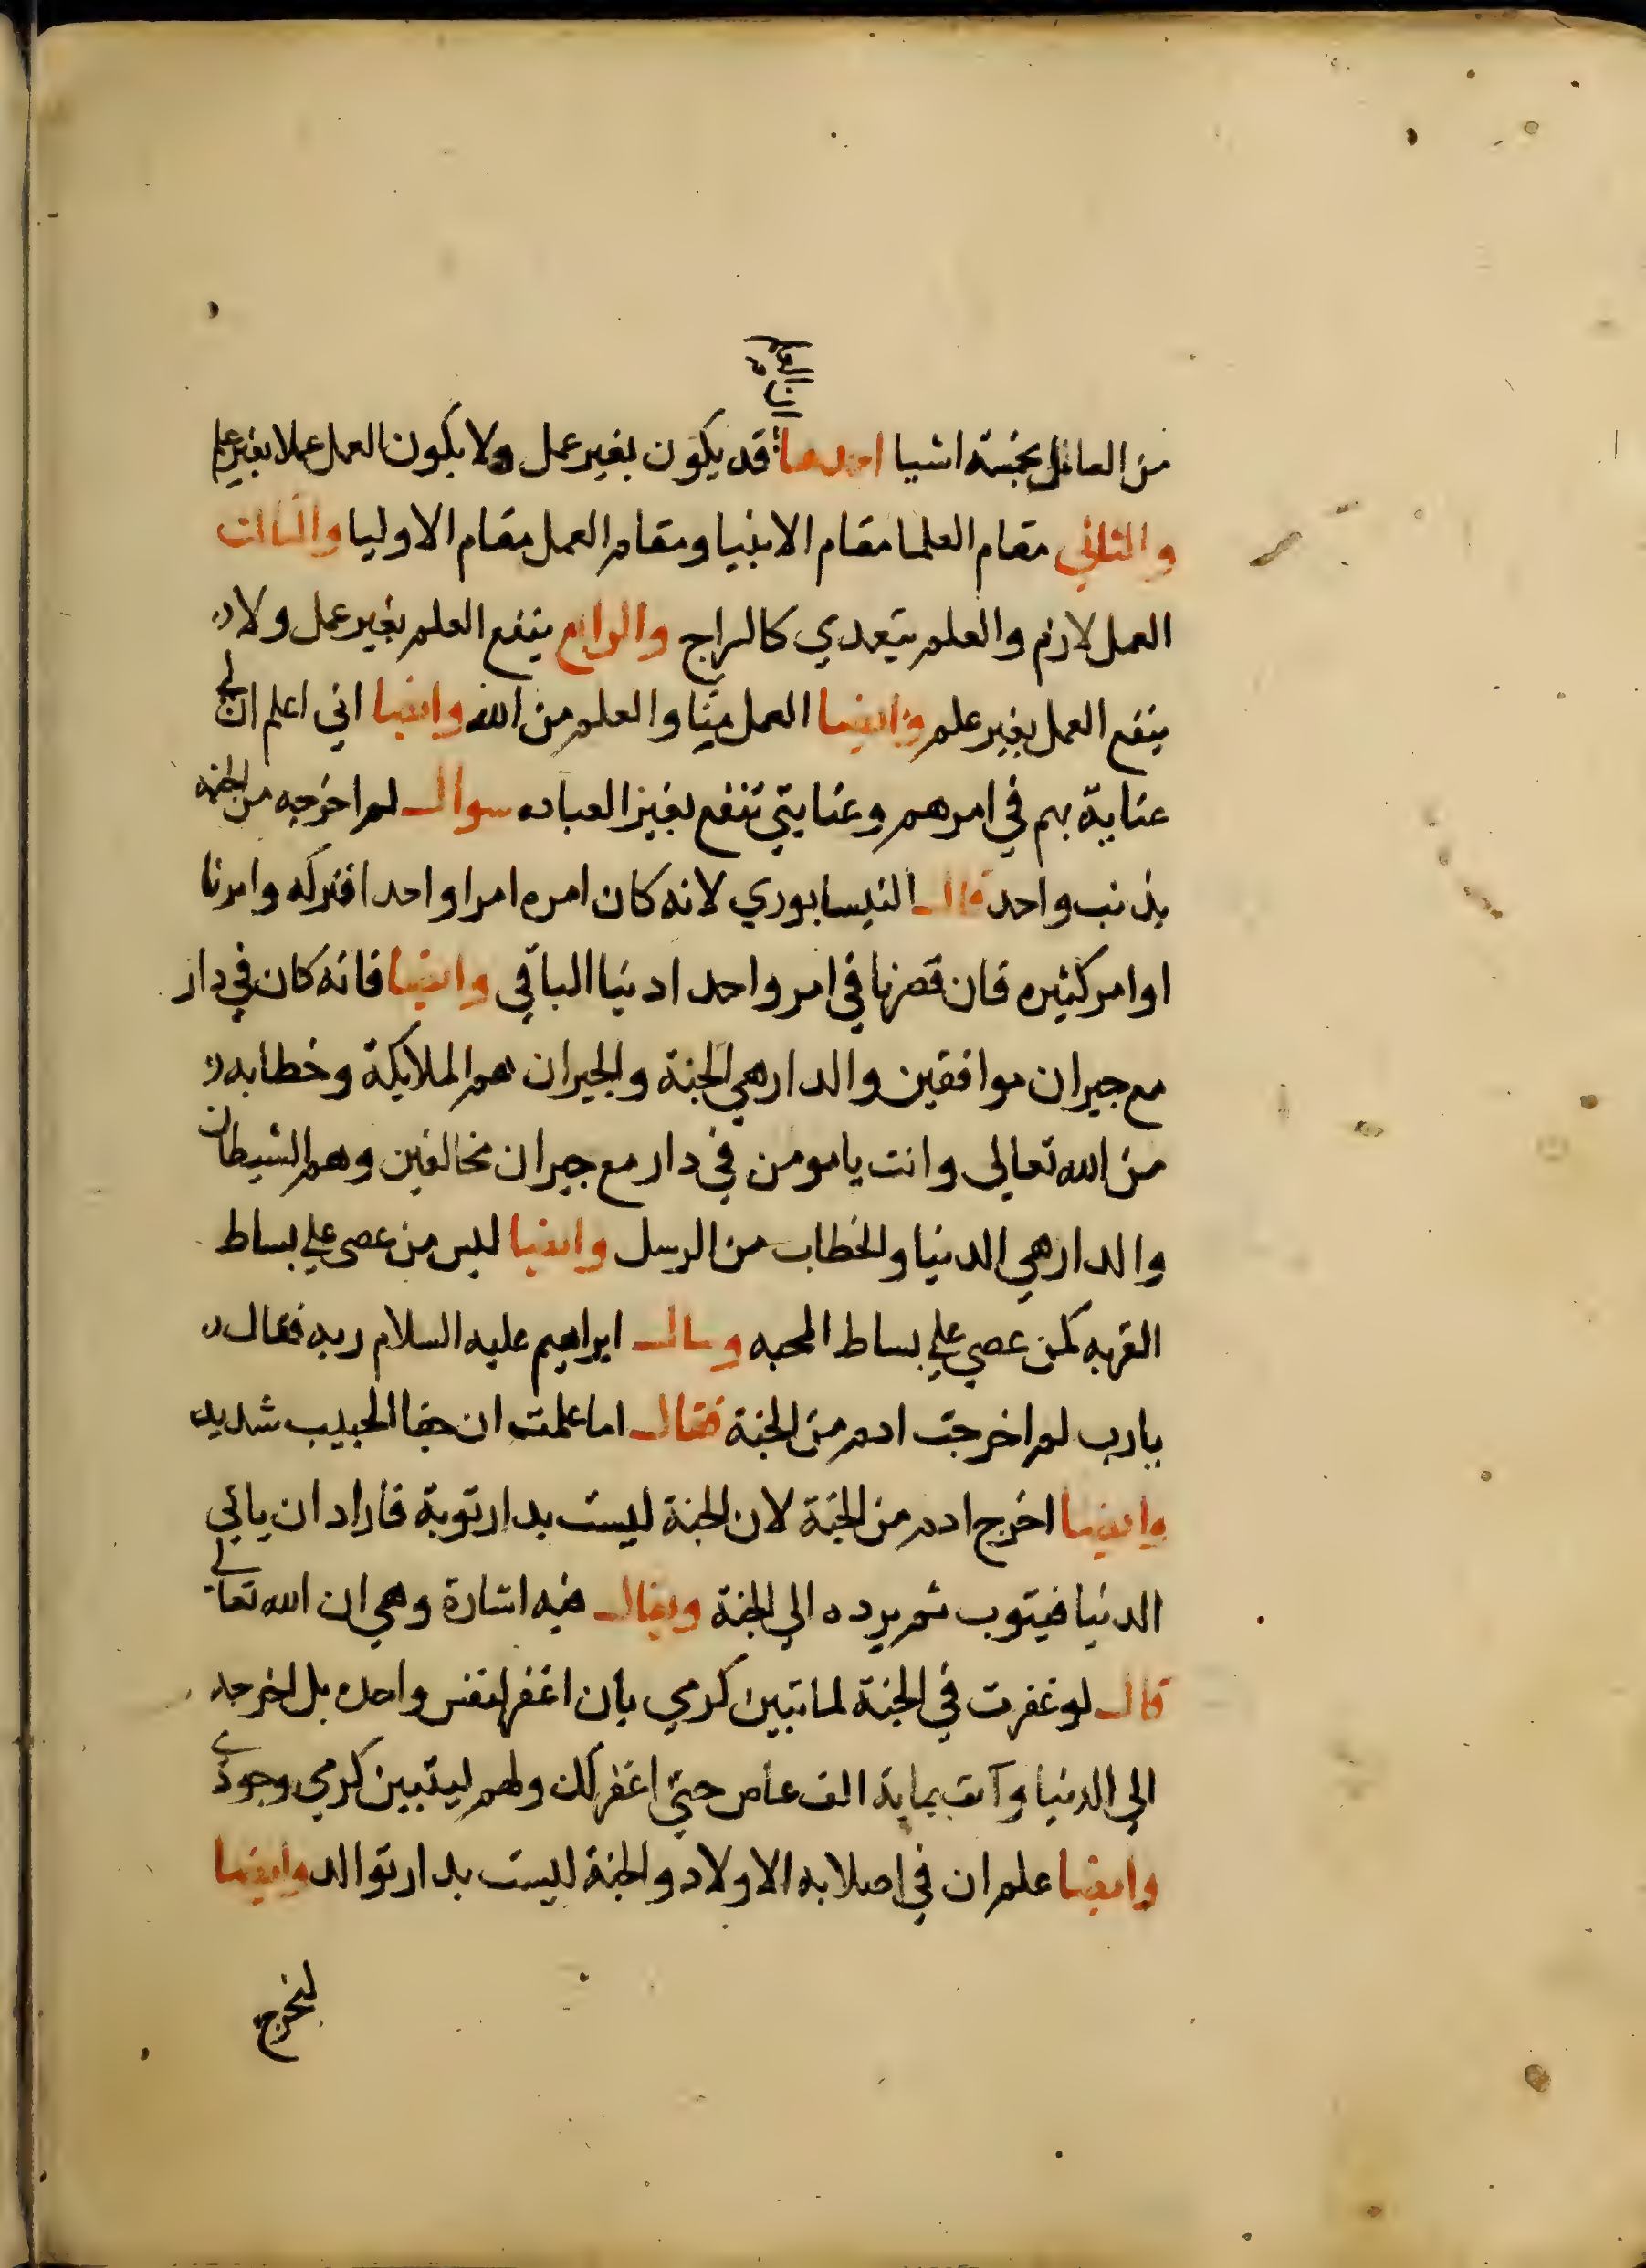 ان العلم
من العامل بخمسة اشيا احدها قد يكون بغير عمل ولا يكون العمل عملا بغير علم
والثاني مقام العلما مقام الانبيا ومقام العمل مقام الاوليا والثالث
العمل لازم والعلم يتعدي كالسراج والرابع ينفع العلم بغير عمل ولا
ينفع العمل بغير علم وايضا العمل منا والعلم من الله وايضا اني اعلم ان لي
عناية بهم في امرهم وعنايتي تنفع بغير العباده سوال لم اخرجه من الجنه
بذنب واحد قال النيسابوري لانه كان امره امرا واحدا فتركه وامرنا
اوامر كثيره فان قصرنا في امر واحد ادينا الباقي وايضا فانه كان في دار
مع جيران موافقين والدار هي الجنة والجيران هم الملايكة وخطابه
من الله تعالى وانت يا مومن في دار مع جيران مخالفين وهم الشيطان
والدار هي الدنيا والخطاب من الرسل وايضا ليس من عصى علي بساط
القربه كمن عصي علي بساط المحبه وسال ابراهيم عليه السلام ربه فقال
يارب لم اخرجت ادم من الجنة فقال اما علمت ان جفا الحبيب شديد
وايضا اخرج ادم من الجنة لان الجنة ليست بدار توبة فاراد ان ياتي
الدنيا فيتوب ثم يرده الي الجنة ويقال فيه اشارة وهي ان الله تعالى
قال لو غفرت في الجنة لما تبين كرمي بان اغفر لنفس واحده بل اخرجه
الي الدنيا وآت بماية الف عاص حتى اغفر لك ولهم ليتبين كرمي وجودي
وايضا علم ان في اصلابه الاولاد والجنة ليست بدار توالد وايضا
ليخرج